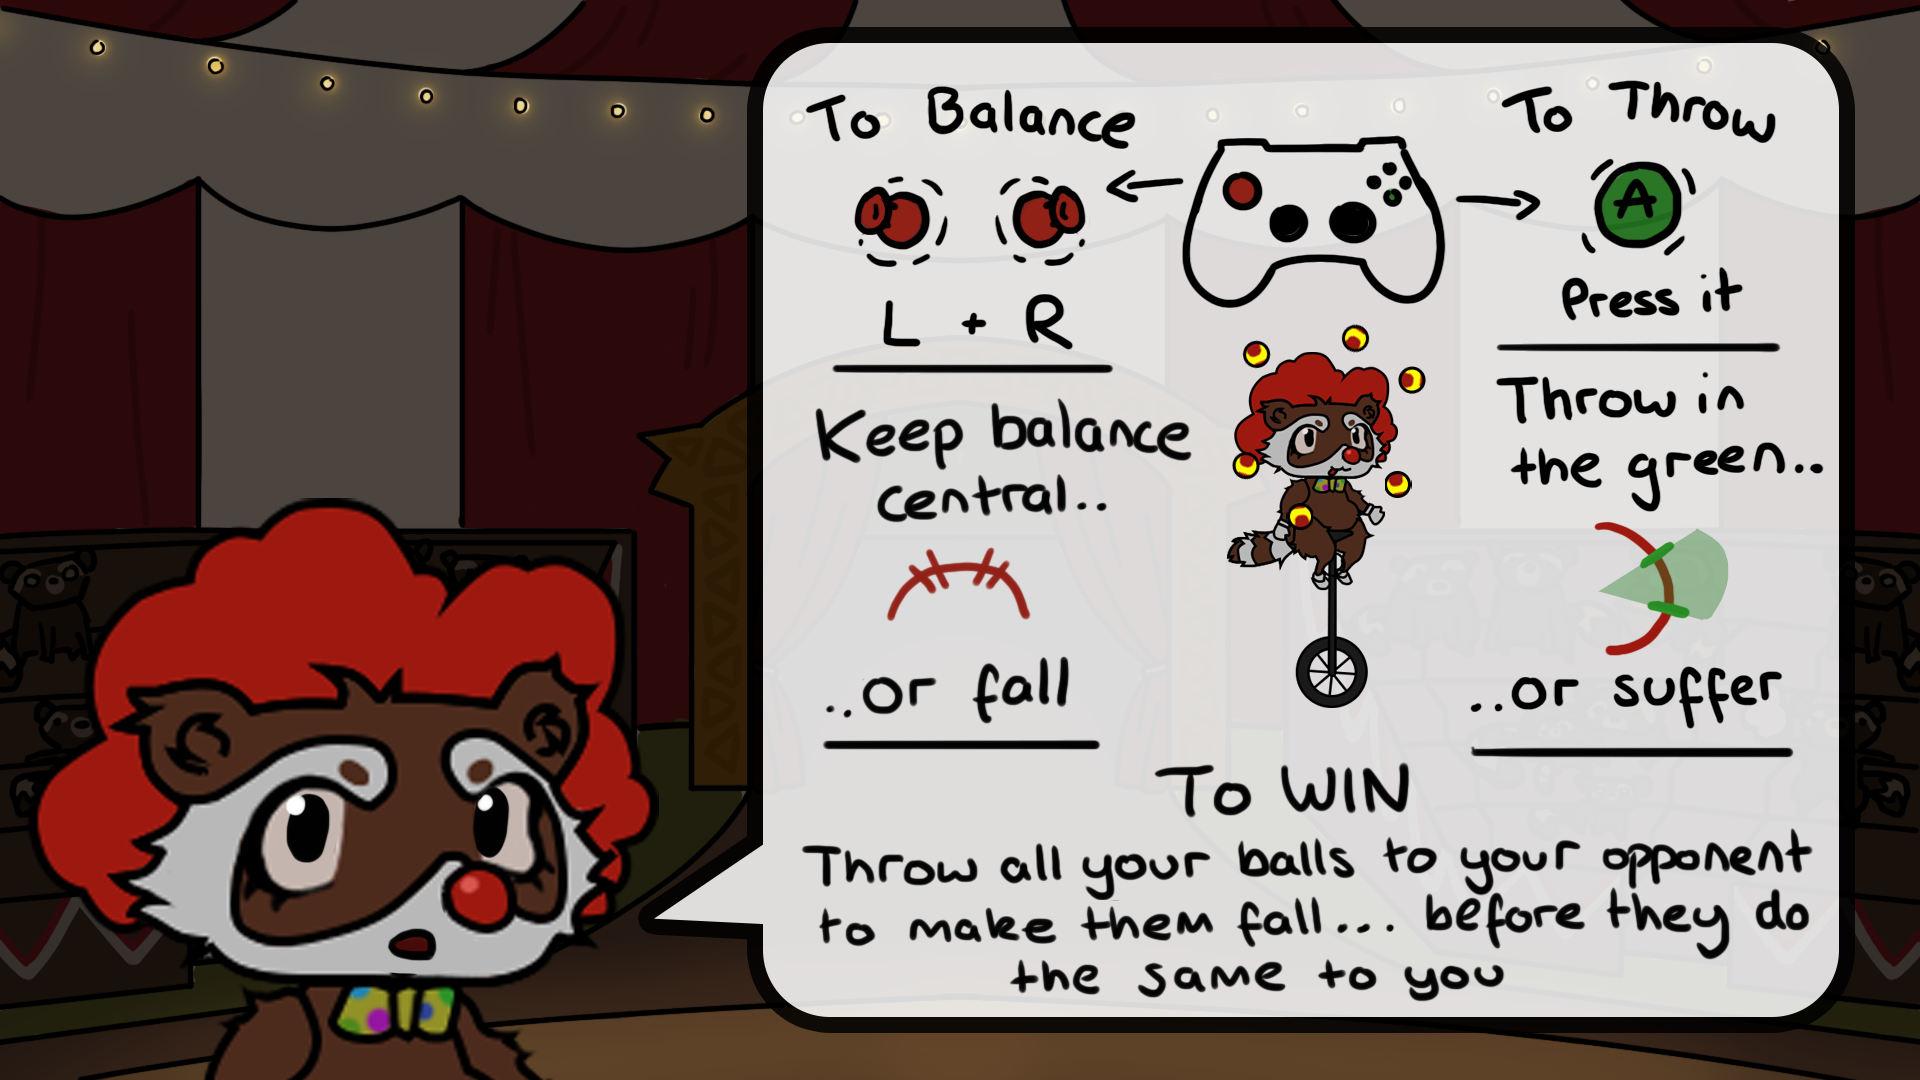 To Balance
L + R
Keep balance
central..
..or fall
To Throw
A
Press it
Throw in
the green..
..or suffer
To WIN
Throw all your balls to your opponent
to make them fall... before they do
the same to you